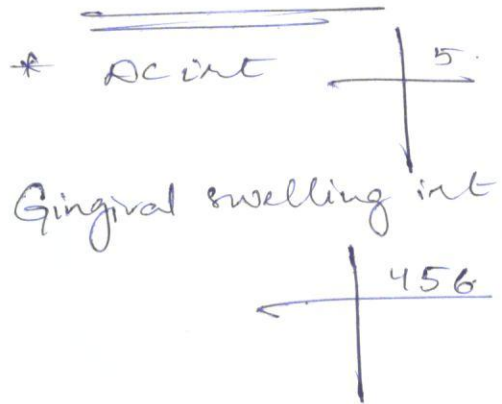 * DC irt 5.
Gingival swelling irt
456